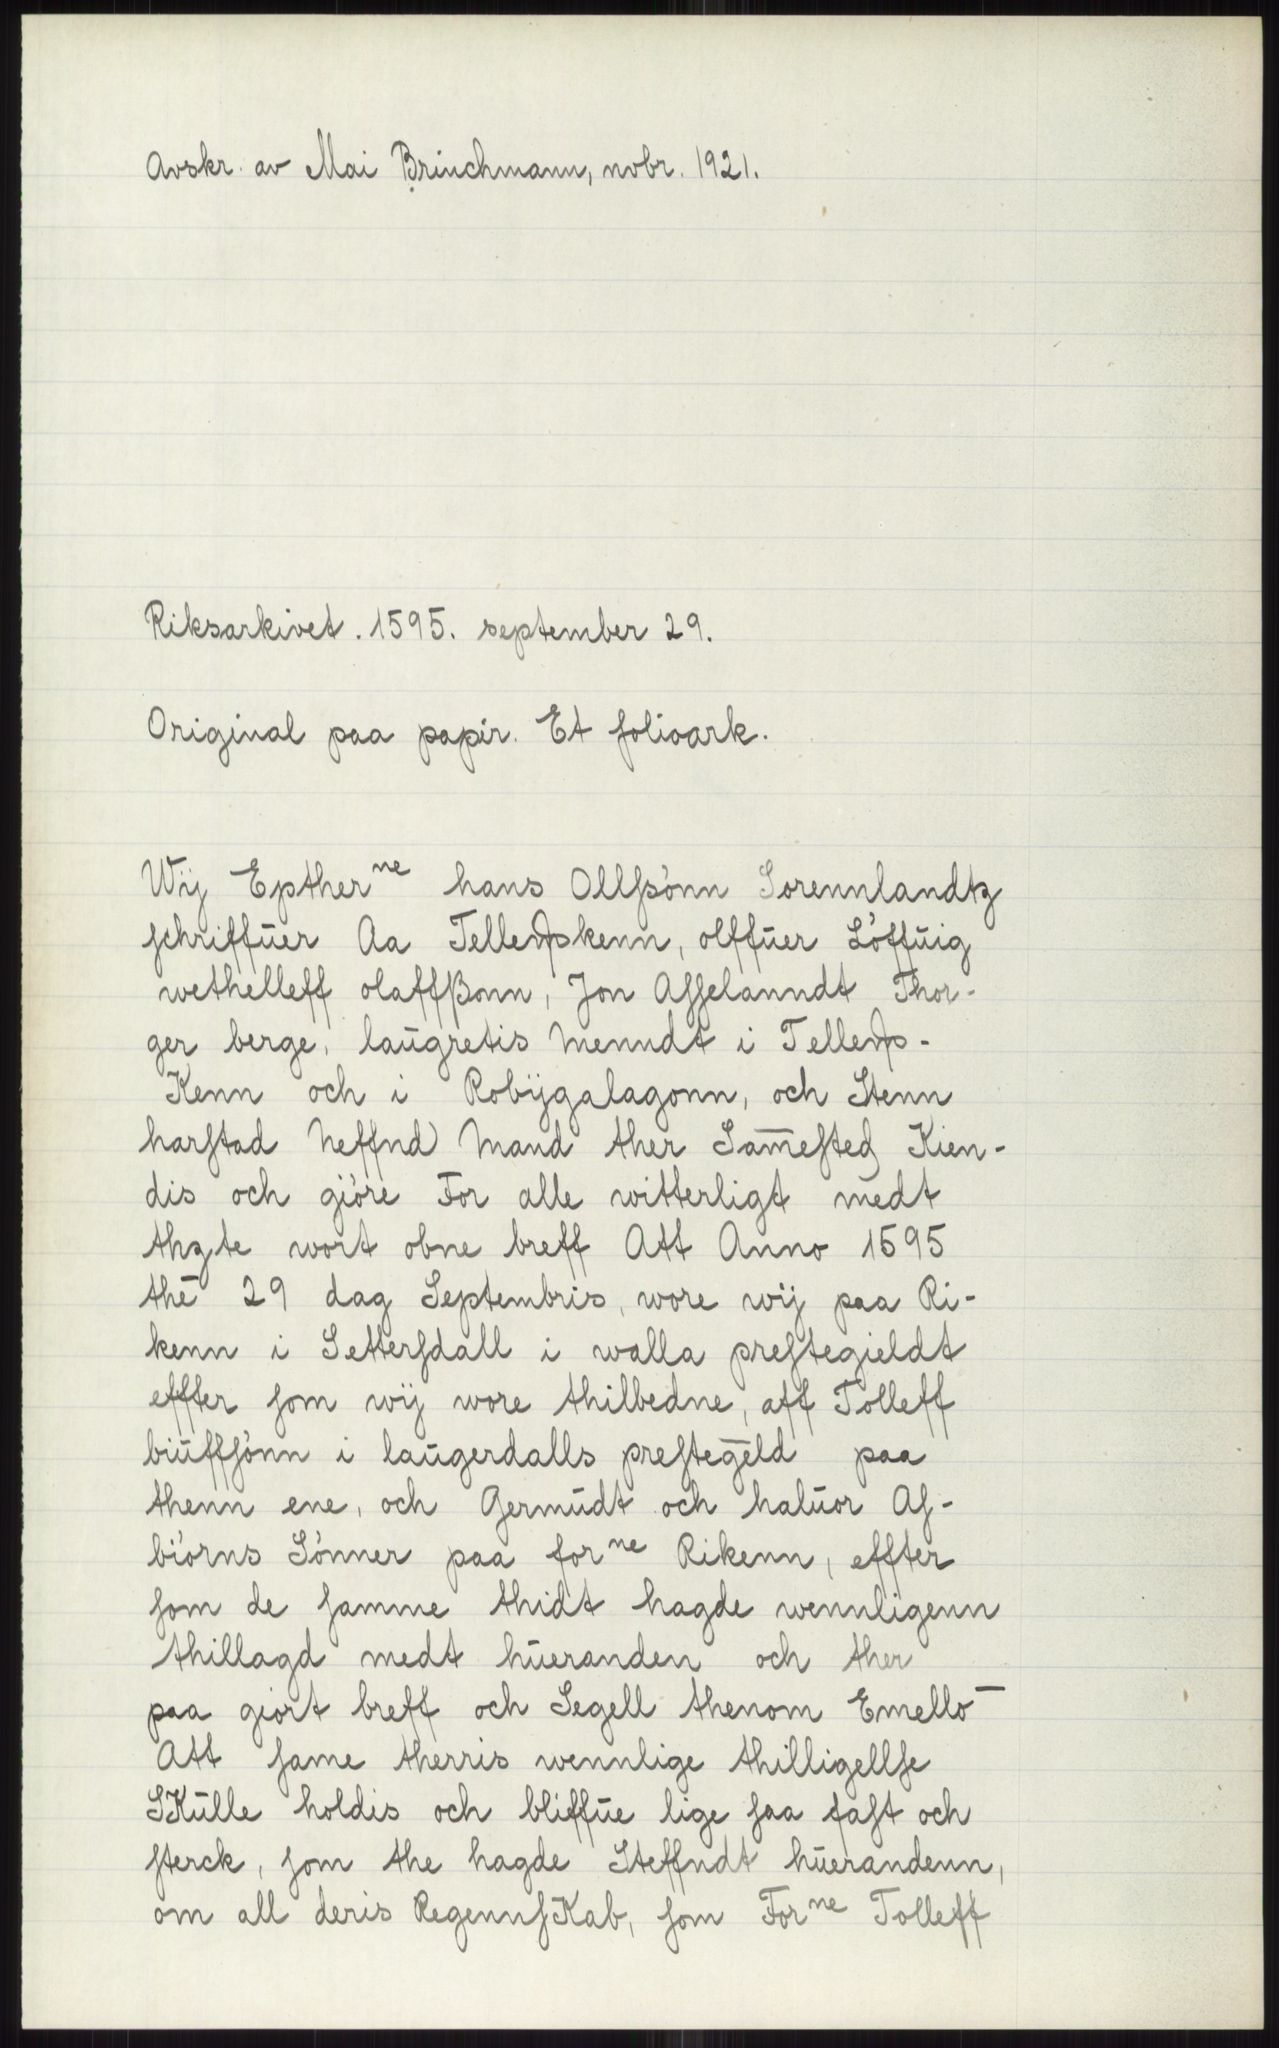 Avskr. av Mai Brinchmann, nvbr. 1921.
Riksarkivet. 1595. september 29.
Original paa papir. Et folioark.
Wij Epther<sup>ne</sup> hans Ollſsönn Sorennlandtz
ſchriffüer Aa Tellemſkenn, olffüer Löffüig
wethelleff olaffßonn, Jon Aſſelanndt Thor-
ger berge, laügretis Menndt i Tellem-
Kenn och i Robÿgalagonn, och Stenn
harſtad Neffnd Mand ther Sam̄eſted Kien-
dis och giöre For alle witterligt medt
thzte wort obne breff Att Anno 1595
thē 29 dag Septembris, wore wij paa Ri-
kenn i Setterſdall i walla preſtegieldt
effter ſom wij wore thilbedne, aff Tolleff
biüffſönn i laügerdalls preſtegēld paa
thenn ene, och Germüdt och halüor Aſ-
biörns Sönner paa for<sup>ne</sup> Rikenn, effter
ſom de ſamme thidt hagde wennligenn
thillagd medt hüeranden och ther
paa giort breff och Segell thenom Emello‾
Att ſame therris wennlige thilligellſe
SKülle holdis och bliffüe lige ſaa faſt och
ſterck, ſom the hagde Steffndt hüerandenn,
om all deris RegennſKab, ſom For<sup>ne</sup> Tolleff